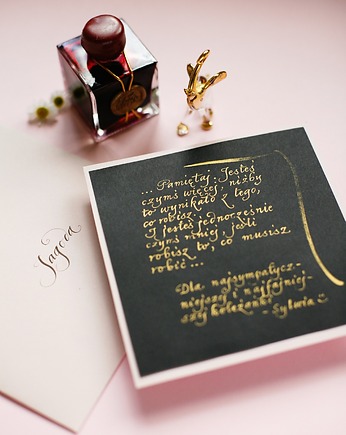 Jagoda
... Pamiętaj: Jesteś
czymś więcej, niżby
to wynikało z tego,
co robisz.
I jesteś jednocześnie
czymś mniej, jeśli
robisz to, co musisz
robić ...
Dla najsympatycz-
niejszej i najfajniej-
szej koleżanki
- Sylwia